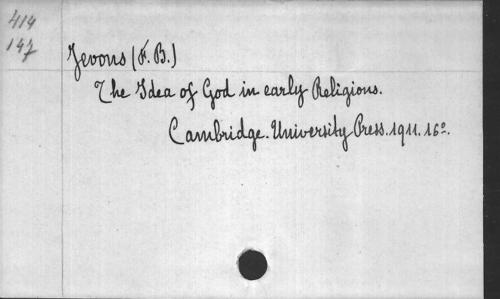 414
147
Jevons (F. B.)
The Idea of God in early Religions.
Cambridge. University Press. 1911. 16º.